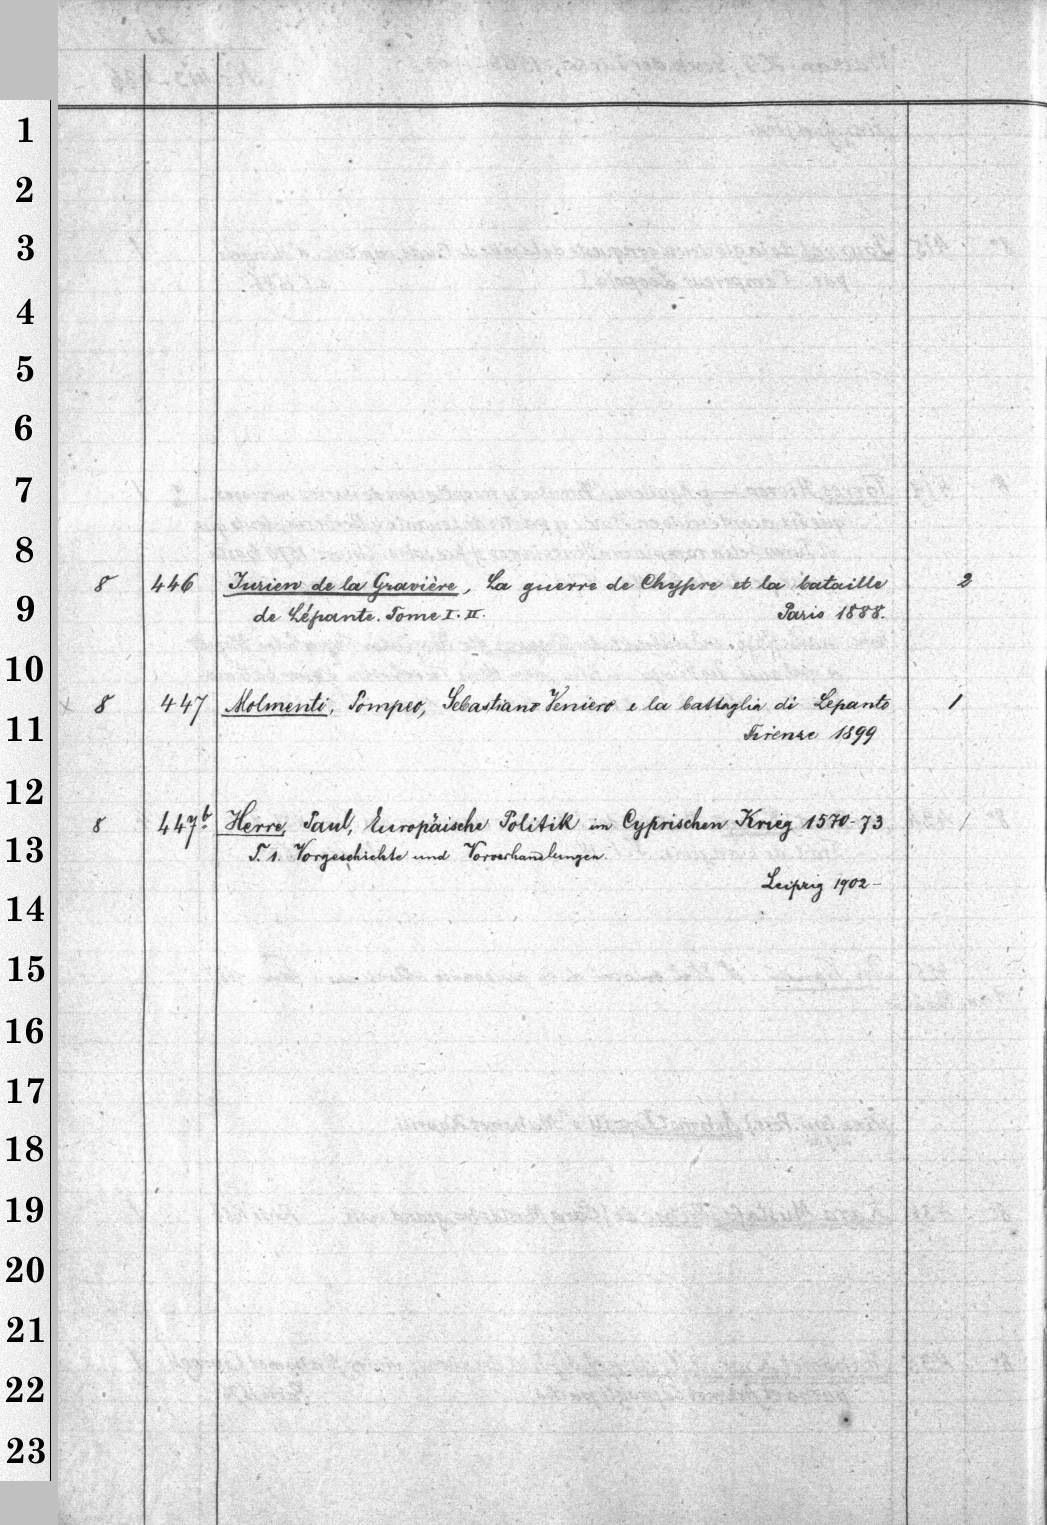 1
2
3
4
5
6
7
8
8 446 Jurien de la Gravière, La guerre de Chypre et la bataille 2
9
de Lépante. Tome I. II. Paris 1888.
10
8 447 Molmenti, Pompeo, Sebastiano Veniero e la battaglia di Lepanto 1
11
Firenze 1899
12
8 447b. Herre, Paul, Europäische Politik im Cyprischen Krieg 1570-73 1
13
T. 1. Vorgeschichte und Vorverhandlungen.
Leipzig 1902-
14
15
16
17
18
19
20
21
22
23